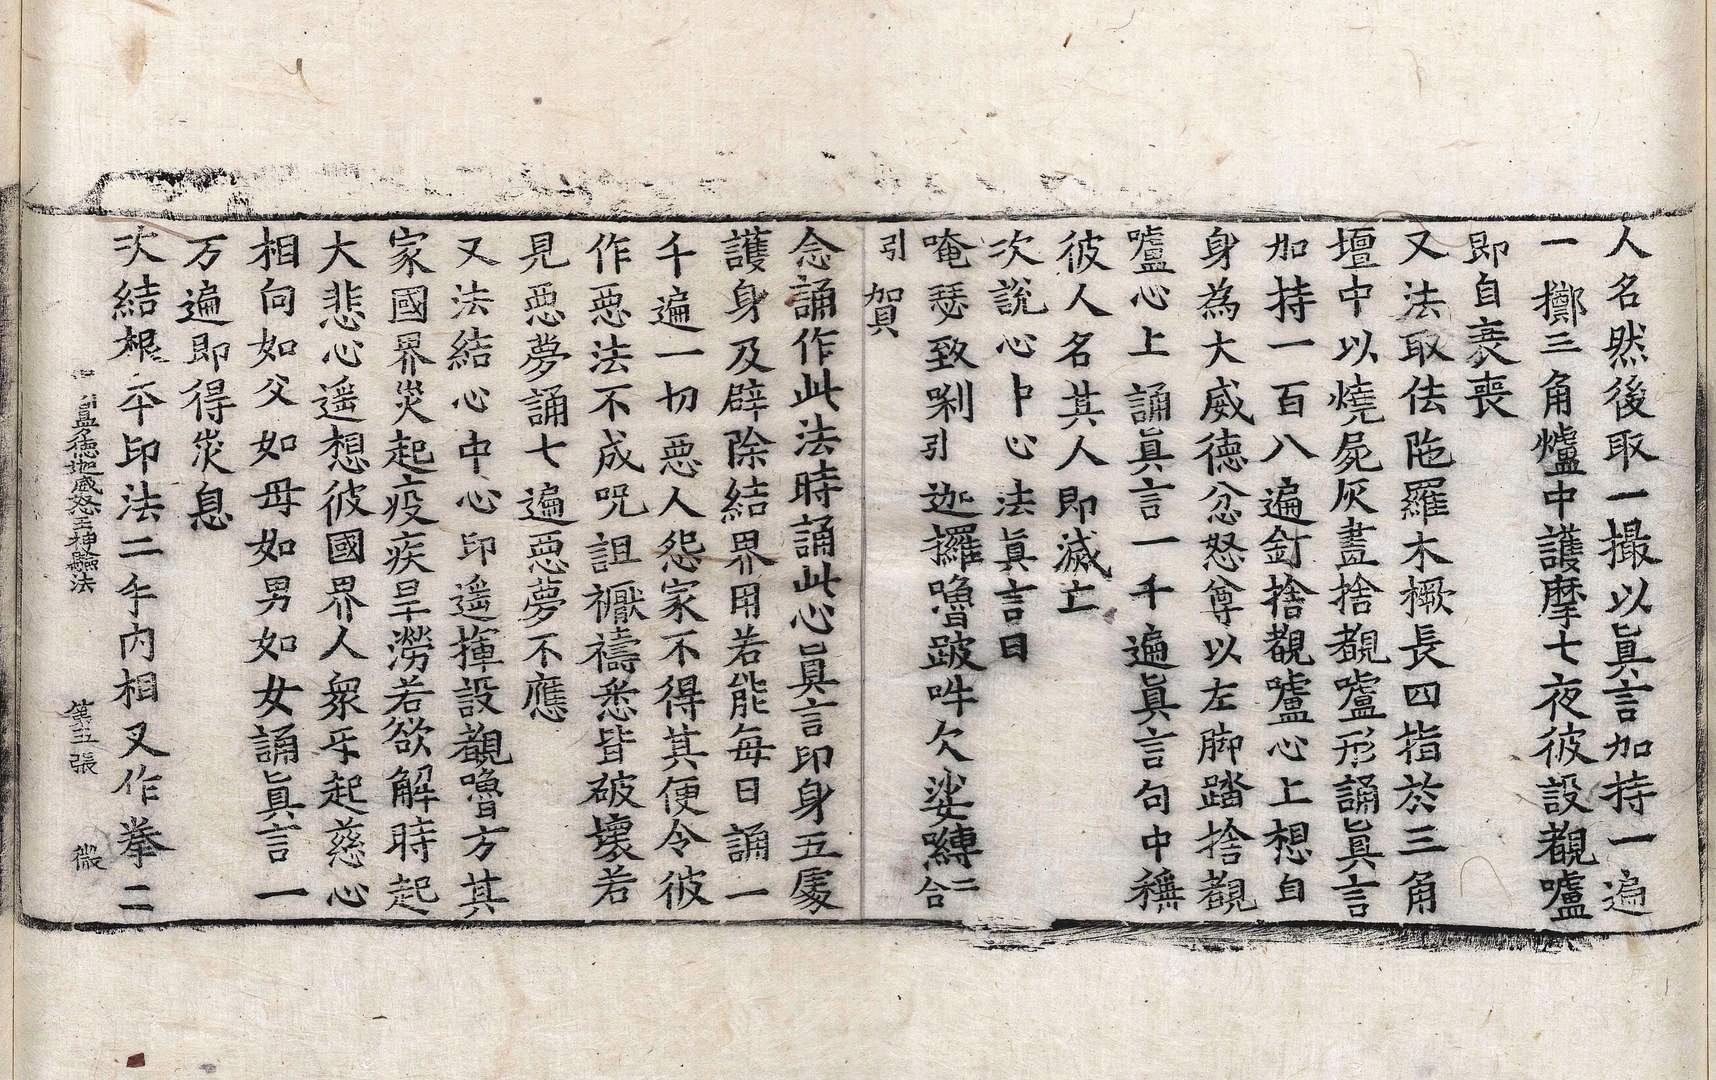 人名然後取一撮以眞言加持一遍
一擲三角爐中護摩七夜彼設覩嚧
即自喪喪
又法取佉陁羅木橛長四指於三角
壇中以燒屍灰畫捨覩嚧形誦眞言
加持一百八遍釘捨覩嚧心上想自
身為大威德忿怒尊以左脚踏捨覩
嚧心上誦眞言一千遍眞言句中稱
彼人名其人即滅亡
次說心中心法眞言曰
唵瑟致唎引迦攞嚕跛吽欠娑嚩二合
引賀
念誦作此法時誦此心眞言印身五處
護身及辟除結界用若能每日誦一
千遍一切惡人怨家不得其便令彼
作惡法不成呪詛禱悉皆破壞若
見惡夢誦七遍惡夢不應
又法結心中心印遥揮設覩嚕方其
家國界災起疫疾旱澇若欲解時起
大悲心遥想彼國界人衆乎起慈心
相向如父如母如男如女誦眞言一
万遍即得災息
次結根本印法二手内相叉作拳二
曼德迦威怒王神驗法 第五張 微